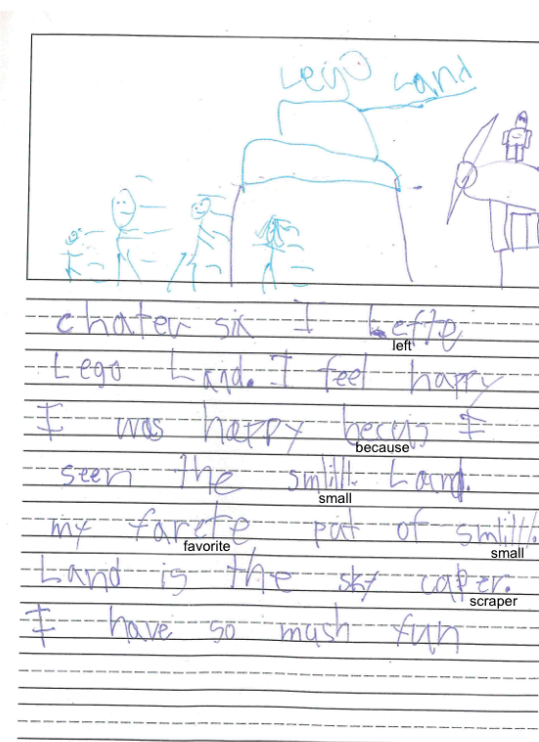 Lego Land
chater six I Lefte
left
Lego Land. I feel happy
I was happy becuis I
because
seen the smlill. Land.
small
my farete pat of smlill.
favorite
small
Land is the sky caper.
scraper
I have so mush fun